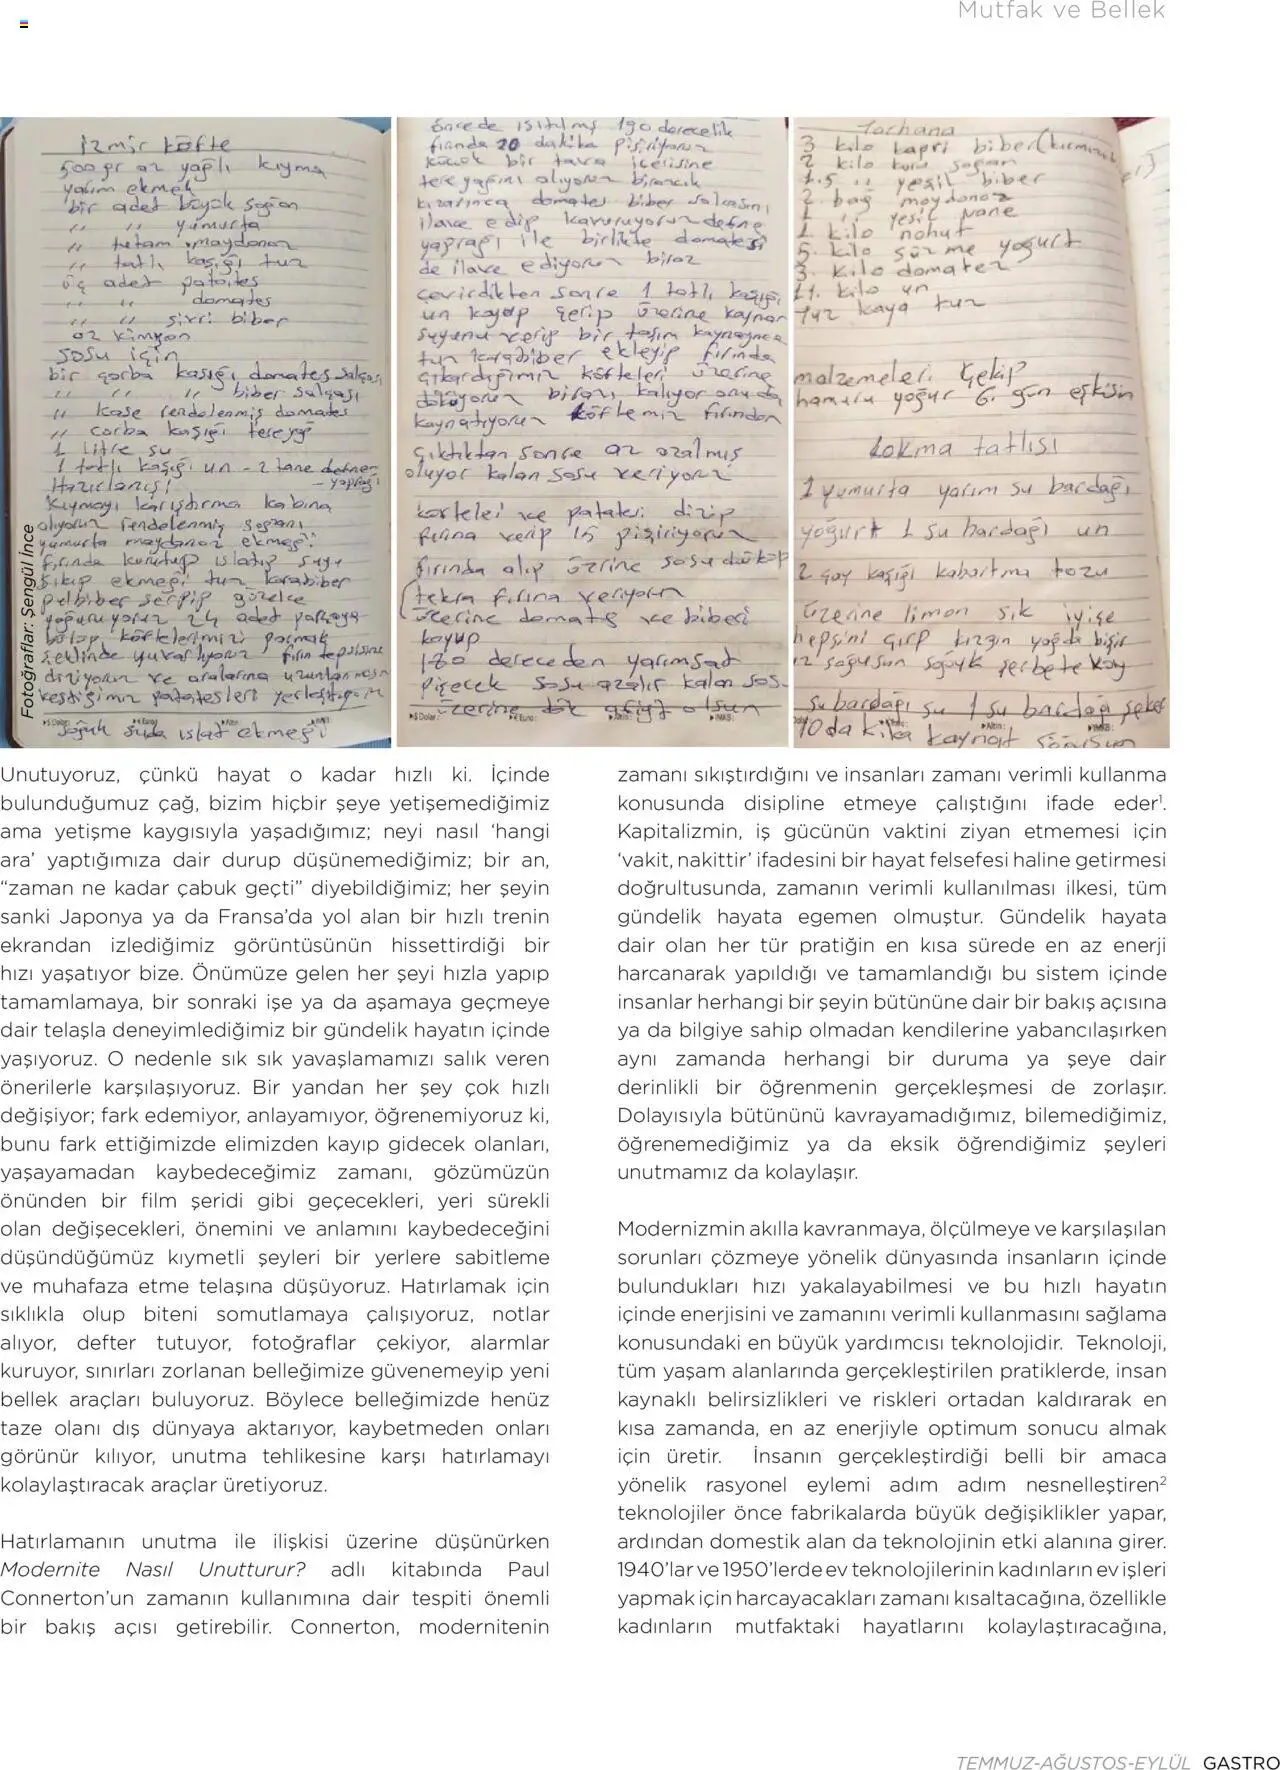 Mutfak ve Bellek
İzmir köfte
500 gr az yağlı kıyma
yarım ekmek
bir adet büyük soğan
" " yumurta
" tutam maydanoz
" tatlı kaşığı tuz
üç adet patates
" " domates
" " sivri biber
az kimyon
sosu için
bir çorba kaşığı domates salçası
" " " biber salçası
" kase rendelenmiş domates
" çorba kaşığı tereyağ
1 litre su
1 tatlı kaşığı un - 2 tane defne
- yaprağı
Hazırlanışı
kıymayı karıştırma kabına
alıyoruz rendelenmiş soğanı
yumurta maydanoz ekmeği
fırında kurutup ıslatıp suyu
sıkıp ekmeği tuz karabiber
pulbiber serpip güzelce
yoğuruyoruz 24 adet parçaya
bölüp köftelerimizi parmak
şeklinde yuvarlıyoruz fırın tepsisine
diziyoruz ve aralarına uzunlamasına
kestiğimiz patatesleri yerleştiriyoruz
soğuk suda ıslat ekmeği
önce de ısıtılmış 190 derecelik
fırında 20 dakika pişiriyoruz
küçük bir tava içerisine
tereyağını alıyoruz birazcık
kızarınca domates biber salçasını
ilave edip kavuruyoruz defne
yaprağı ile birlikte domatesi
de ilave ediyoruz biraz
çevirdikten sonra 1 tatlı kaşığı
un koyup üzerine kaynar
suyunu verip bir taşım kaynayınca
tuz karabiber ekleyip fırında
çıkardığımız köfteleri üzerine
döküyoruz birazı kalıyor onu da
kaynatıyoruz köftemiz fırından
çıktıktan sonra az azalmış
oluyor kalan sosu veriyoruz
köftelei ve patatesi dizip
fırına verip 15 pişiriyoruz
fırında alıp üzrine sosu döküp
tekra fırına veriyoruz
üzerine domates ve biberi
koyup
180 dereceden yarımsaat
pişecek sosu azalır kalan sos
üzerine dök afiyt olsun
Tarhana
3 kilo kapri biber (kırmızı
2 kilo kuru soğan
1.5 " yeşil biber
2 bağ maydonoz
1 " yeşil nane
1 kilo nohut
5 kilo süzme yoğurt
3 kilo domates
11 kilo un
tuz kaya tuz
malzemeleri çekip
hamuru yoğur 6 gün ekşisin
Lokma tatlısı
1 yumurta yarım su bardağı
yoğurt 1 su bardağı un
2 çay kaşığı kabartma tozu
üzerine limon sık iyice
hepsini çırp kızgın yağda pişir
soğusun soğuk şerbete koy
su bardağı su 1 su bardağı şeker
10 dakika kaynat soğusun
Fotoğraflar: Şengül İnce
Unutuyoruz, çünkü hayat o kadar hızlı ki. İçinde
bulunduğumuz çağ, bizim hiçbir şeye yetişemediğimiz
ama yetişme kaygısıyla yaşadığımız; neyi nasıl ‘hangi
ara’ yaptığımıza dair durup düşünemediğimiz; bir an,
“zaman ne kadar çabuk geçti” diyebildiğimiz; her şeyin
sanki Japonya ya da Fransa’da yol alan bir hızlı trenin
ekrandan izlediğimiz görüntüsünün hissettirdiği bir
hızı yaşatıyor bize. Önümüze gelen her şeyi hızla yapıp
tamamlamaya, bir sonraki işe ya da aşamaya geçmeye
dair telaşla deneyimlediğimiz bir gündelik hayatın içinde
yaşıyoruz. O nedenle sık sık yavaşlamamızı salık veren
önerilerle karşılaşıyoruz. Bir yandan her şey çok hızlı
değişiyor; fark edemiyor, anlayamıyor, öğrenemiyoruz ki,
bunu fark ettiğimizde elimizden kayıp gidecek olanları,
yaşayamadan kaybedeceğimiz zamanı, gözümüzün
önünden bir film şeridi gibi geçecekleri, yeri sürekli
olan değişecekleri, önemini ve anlamını kaybedeceğini
düşündüğümüz kıymetli şeyleri bir yerlere sabitleme
ve muhafaza etme telaşına düşüyoruz. Hatırlamak için
sıklıkla olup biteni somutlamaya çalışıyoruz, notlar
alıyor, defter tutuyor, fotoğraflar çekiyor, alarmlar
kuruyor, sınırları zorlanan belleğimize güvenemeyip yeni
bellek araçları buluyoruz. Böylece belleğimizde henüz
taze olanı dış dünyaya aktarıyor, kaybetmeden onları
görünür kılıyor, unutma tehlikesine karşı hatırlamayı
kolaylaştıracak araçlar üretiyoruz.
Hatırlamanın unutma ile ilişkisi üzerine düşünürken
Modernite Nasıl Unutturur? adlı kitabında Paul
Connerton’un zamanın kullanımına dair tespiti önemli
bir bakış açısı getirebilir. Connerton, modernitenin
zamanı sıkıştırdığını ve insanları zamanı verimli kullanma
konusunda disipline etmeye çalıştığını ifade eder¹.
Kapitalizmin, iş gücünün vaktini ziyan etmemesi için
‘vakit, nakittir’ ifadesini bir hayat felsefesi haline getirmesi
doğrultusunda, zamanın verimli kullanılması ilkesi, tüm
gündelik hayata egemen olmuştur. Gündelik hayata
dair olan her tür pratiğin en kısa sürede en az enerji
harcanarak yapıldığı ve tamamlandığı bu sistem içinde
insanlar herhangi bir şeyin bütününe dair bir bakış açısına
ya da bilgiye sahip olmadan kendilerine yabancılaşırken
aynı zamanda herhangi bir duruma ya şeye dair
derinlikli bir öğrenmenin gerçekleşmesi de zorlaşır.
Dolayısıyla bütününü kavrayamadığımız, bilemediğimiz,
öğrenemediğimiz ya da eksik öğrendiğimiz şeyleri
unutmamız da kolaylaşır.
Modernizmin akılla kavranmaya, ölçülmeye ve karşılaşılan
sorunları çözmeye yönelik dünyasında insanların içinde
bulundukları hızı yakalayabilmesi ve bu hızlı hayatın
içinde enerjisini ve zamanını verimli kullanmasını sağlama
konusundaki en büyük yardımcısı teknolojidir. Teknoloji,
tüm yaşam alanlarında gerçekleştirilen pratiklerde, insan
kaynaklı belirsizlikleri ve riskleri ortadan kaldırarak en
kısa zamanda, en az enerjiyle optimum sonucu almak
için üretir. İnsanın gerçekleştirdiği belli bir amaca
yönelik rasyonel eylemi adım adım nesnelleştiren²
teknolojiler önce fabrikalarda büyük değişiklikler yapar,
ardından domestik alan da teknolojinin etki alanına girer.
1940’lar ve 1950’lerde ev teknolojilerinin kadınların ev işleri
yapmak için harcayacakları zamanı kısaltacağına, özellikle
kadınların mutfaktaki hayatlarını kolaylaştıracağına,
TEMMUZ-AĞUSTOS-EYLÜL GASTRO